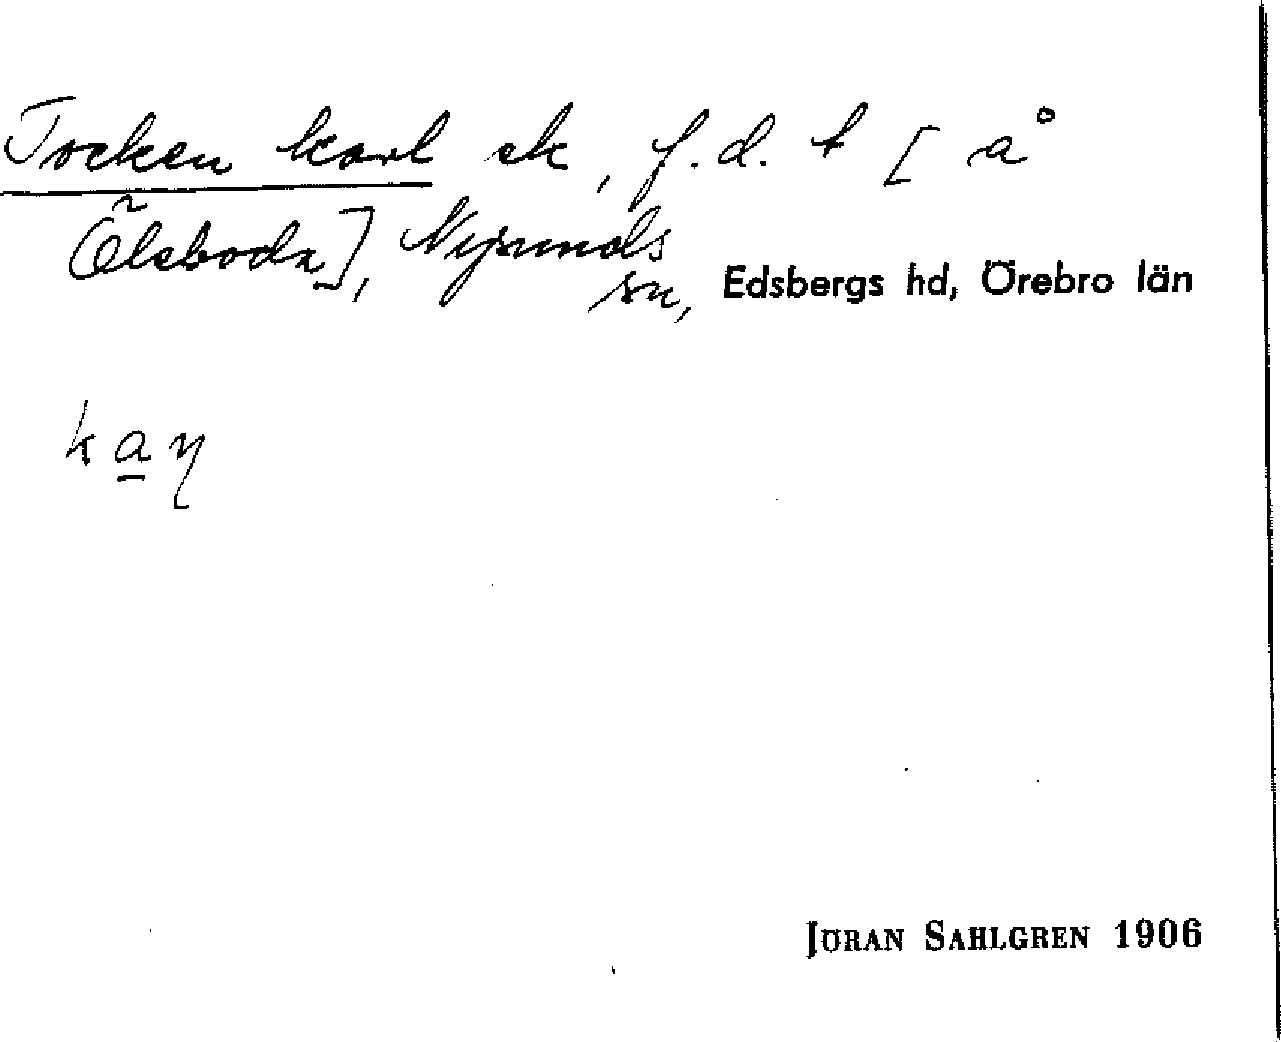 Tocken karl ek, f.d. t [å
Ölsboda], Nysunds
sn, Edsbergs hd, Örebro län
JÖRAN SAHLGREN 1906